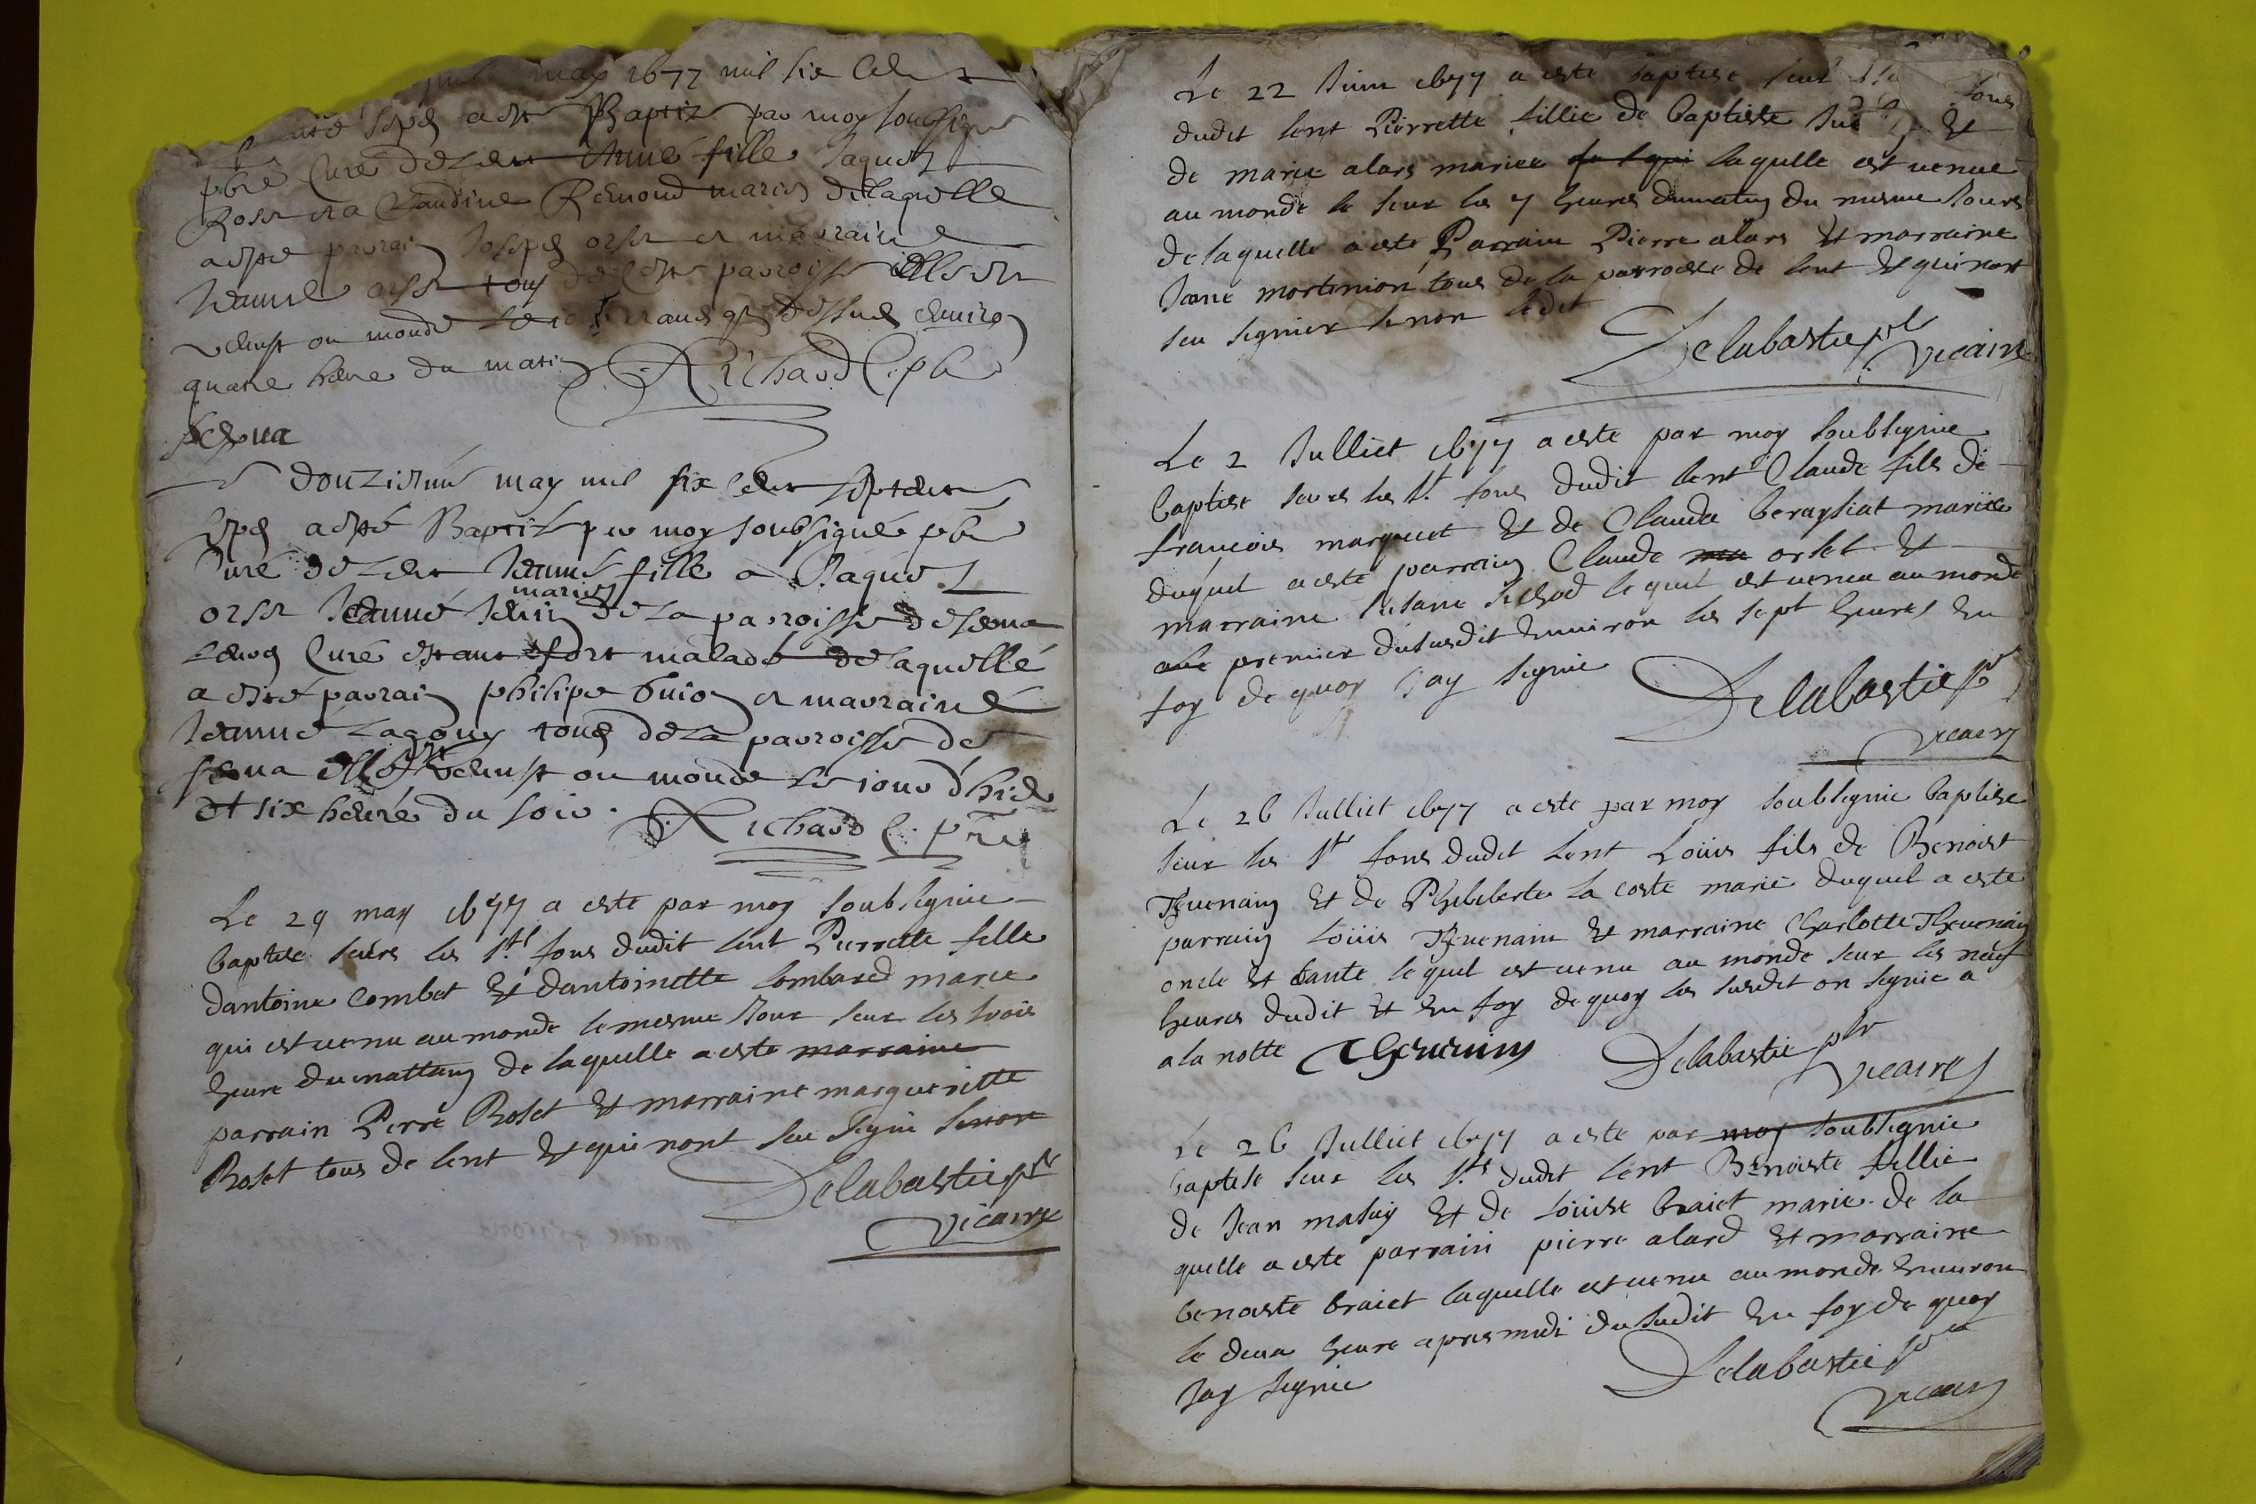 may 1677 mil six cent
sept a esté Baptiz par moy soussigné
pbre Curé de Lent fille Jaques
et a Claudine Remond mariés de laquelle
a esté parrain Joseph orset et marraine
Jeanne orset tous de cette parroisse elle est
venust au monde environ
quatre heure du matin Richard C. pbre
serva
Le douziesme may mil six cent septante
sept a esté Baptisé par moy soubsigné pbre
Curé de Lent Jeanne fille a Jaques
orset Jeanne mariés de la parroisse de serva
Curé estant fort malade de laquelle
a esté parrain philipe buion et marraine
Jeanne Lagouy tous de la parroisse de
serva elle est venust au monde le jour d'hier
et six heure du soir. Richard C. pre
Le 29 may 1677 a esté par moy soubsignie
baptise seurs les sts fons dudit lent Pierrette fille
dantoine Combet et dantoinette lombard marie
qui est venu au monde le mesme Jour seur les trois
heure du mattin de laquelle a este marraine
parrain Pierre Roset et marraine margueritte
Roset tous de lent et qui nont seu signé senon
Delabastie pbr
vicaire
Le 22 Juin 1677 a este baptise seur fons
dudit lent Pierrette fillie de baptiste et
de marie alars mariee laquelle est venue
au monde le seur les 7 heures du matin du mesme Jours
de laquelle a este Parrain Pierre alars et marraine
Jane mortemion tous de la parroesse de lent et qui nont
seu signier senon ledit
Delabastie pbr vicaire
Le 2 Julliet 1677 a este par moy soubsignie
baptise seurs les st. fons dudit lent Claude fils de
francois marguet et de Clauda beraysiat mariee
duquel a este parrain Claude orset et
marraine Susane lequel est venu au monde
premier dususdit environ les sept heures En
foy de quoy Jay signie
Delabastie pbr
vicaire
Le 26 Julliet 1677 a este par moy soubsignie baptise
seur les sts fons dudit lent Loüis fils de Benoist
Thuenain et de Phileberte la coste marie duquel a este
parrain loüis Thuenain et marraine Charlotte Thevenain
oncle et tante lequel est venu au monde seur les neuf
heures dudit et En foy de quoy les susdit on signie a
a la notte Thevenin Delabastie pbr
vicaire
Le 26 Julliet 1677 a este par moy soubsignie
baptise seur les sts dudit lent Benoiste fillie
de Jean matuy et de loüise braiet marie de la
quelle a este parrain pierre alard et marraine
benoiste braiet laquelle est venu au monde Environ
le deux heure apres midi du sudit En foy de quoy
Jay signie Delabastie pbr
vicaire